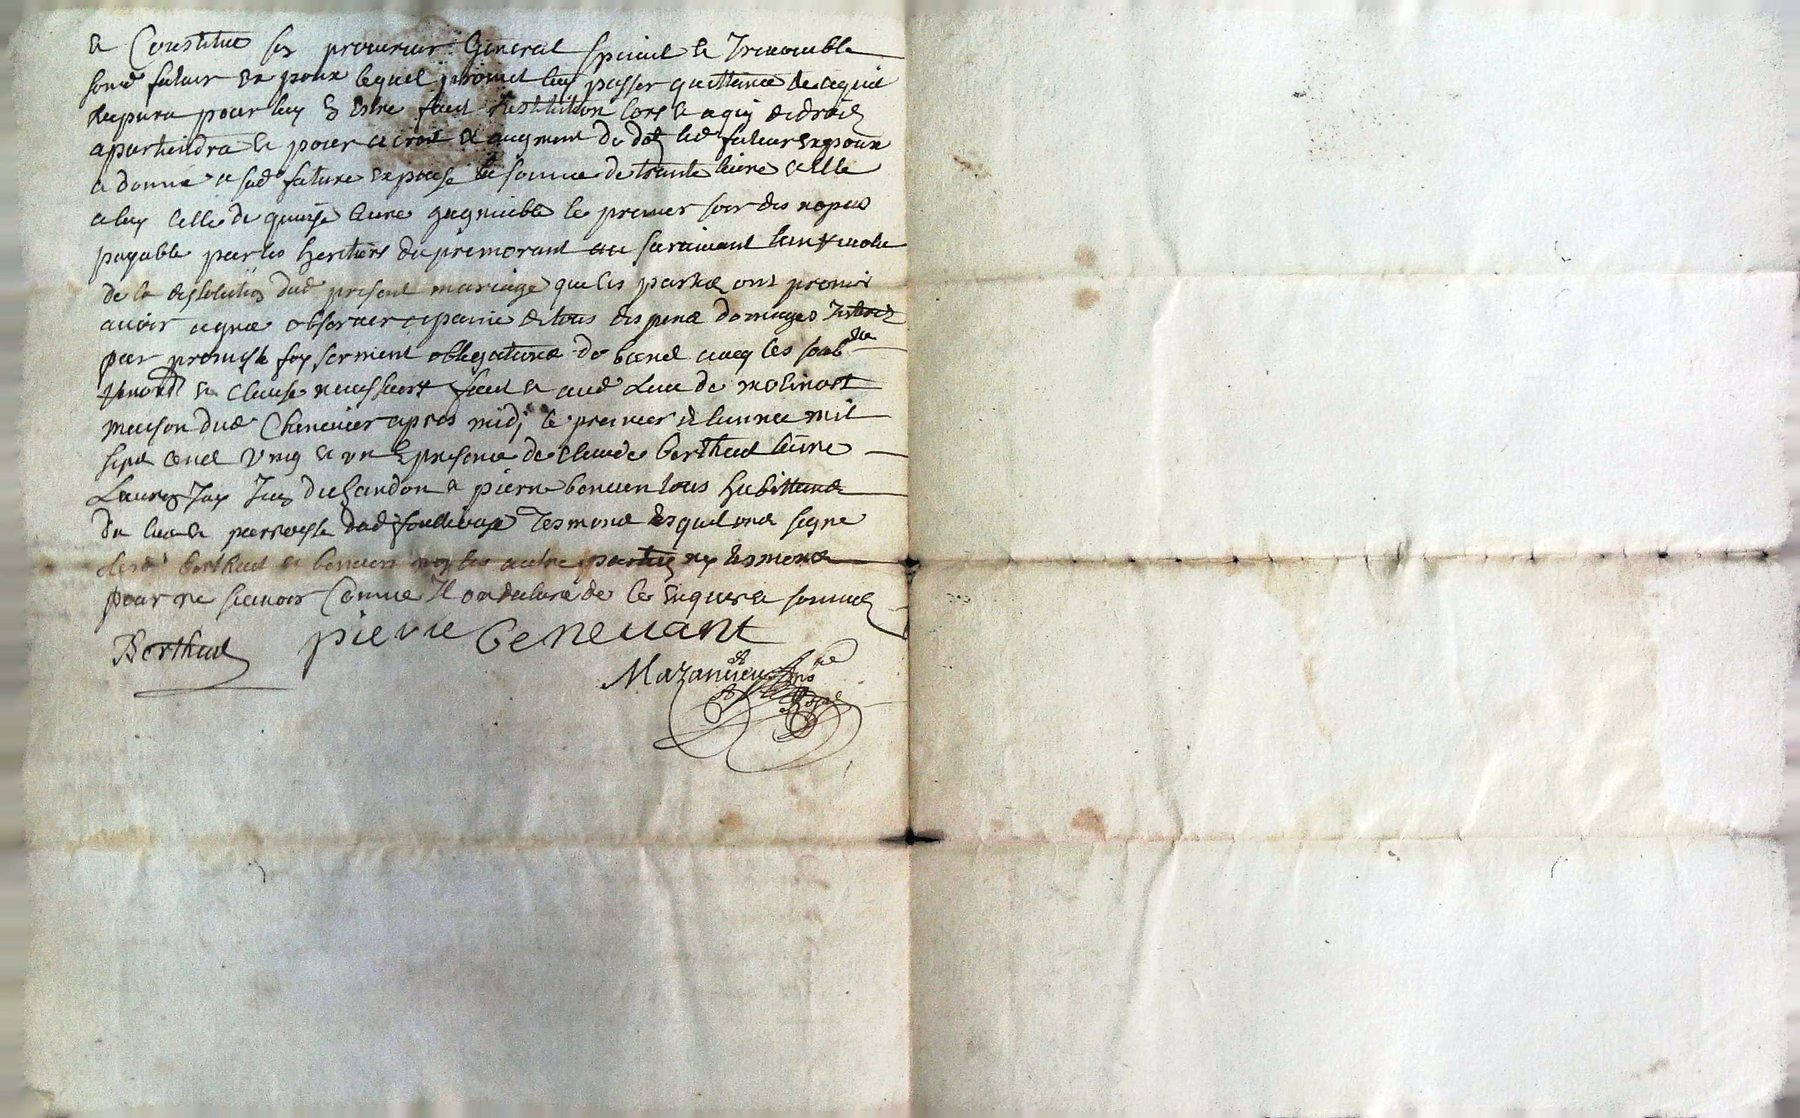 a Constitue son procureur General special et Irrevocable
sond futeur Expoux lequel promet luy passer quittance de ce quil
Recepura pour luy En Estre faict Restitution lors et a quy de droict
apartiendra et pour acroit et augment de dot led futeur Expoux
a donne a sad future Expouse la somme de trante livre et elle
a luy celle de quinze livre gagniable le premier soir des nopces
payable par les heritiers du premorant au survivant
de la disolution dud present mariage que les parties ont promis
avoir agrea observer a paine de tous despens domages Interetz
par promesse foy serment obligations de biens avec les soub
Renon et clause necessaire faict et aud lieu de molinost
meyson dud Chenevier apres midy le premier de l'annee mil
sept cent Vingt et un En presence de claude berthud
Jay du Chandon et pierre benevent tous habittans
du lieu et parroisse dud Tesmoins Lesquels ont signe
Lesd berthud et benevent non les autre parties ny tesmoins
pour ne scavoir Comme Il ont declare de ce Enquis et sommes
Berthud
pierre benevant
Mazanieu